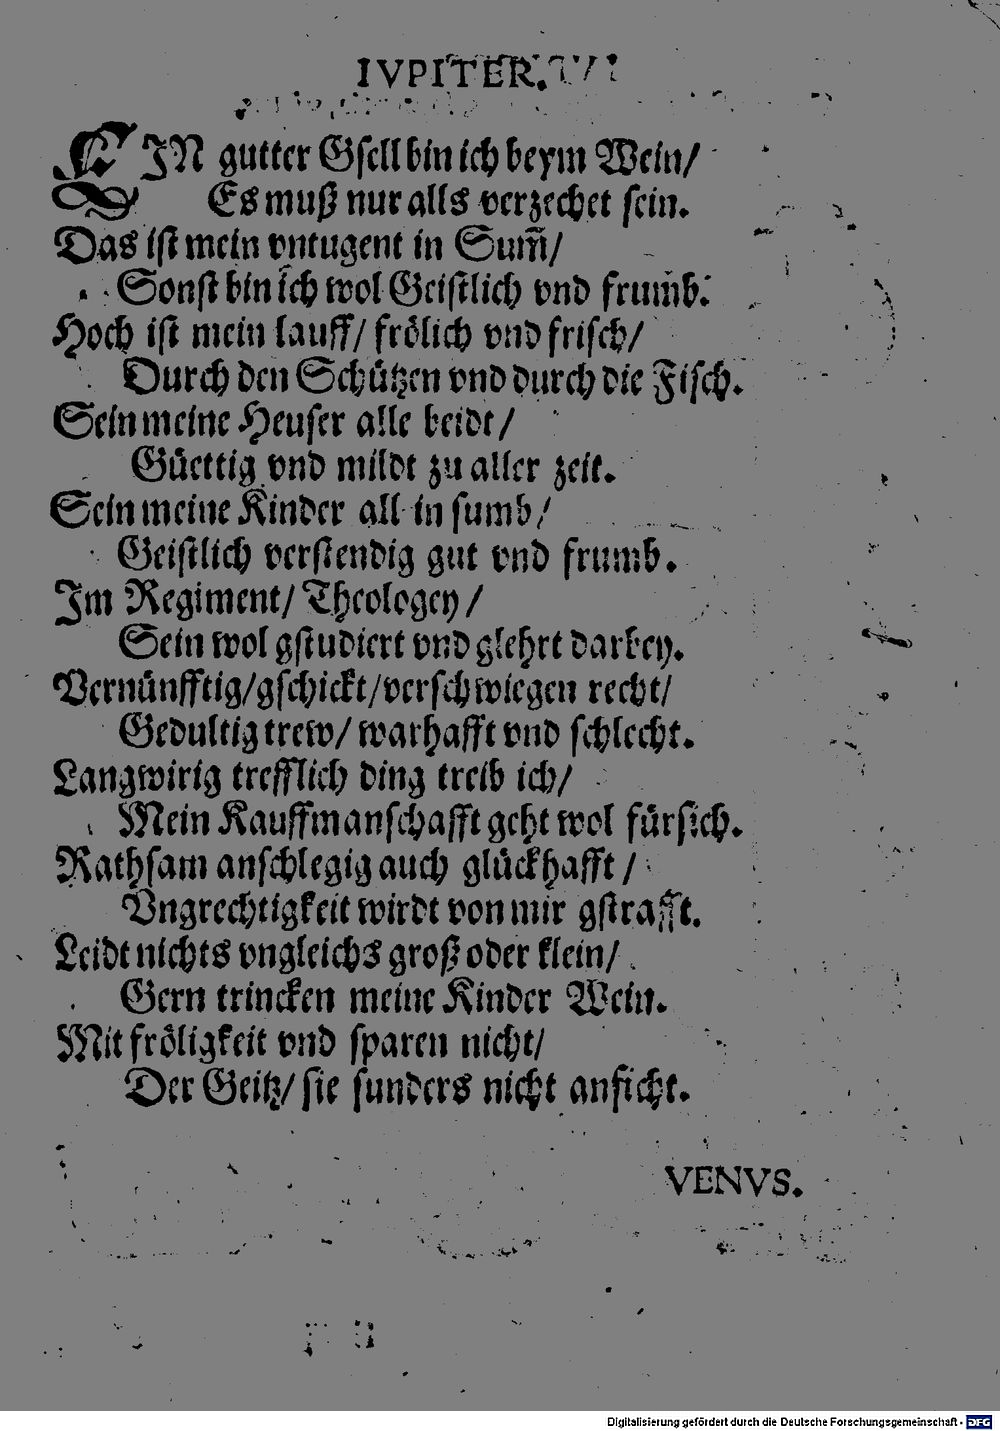 IVPITER.
EIN gutter Gsell bin ich beym Wein/
Es muß nur alls verzechet sein.
Das ist mein vntugent in Sum̃/
Sonst bin ich wol Geistlich vnd frumb.
Hoch ist mein lauff/ frölich vnd frisch/
Durch den Schützen vnd durch die Fisch.
Sein meine Heuser alle beidt/
Güettig vnd mildt zu aller zeit.
Sein meine Kinder all in sumb/
Geistlich verstendig gut vnd frumb.
Im Regiment/ Theologey/
Sein wol gstudiert vnd glehrt darbey.
Vernünfftig/gschickt/verschwiegen recht/
Gedultig trew/ warhafft vnd schlecht.
Langwirig trefflich ding treib ich/
Mein Kauffmanschafft geht wol fürsich.
Rathsam anschlegig auch glückhafft/
Vngrechtigkeit wirdt von mir gstrafft.
Leidt nichts vngleichs groß oder klein/
Gern trincken meine Kinder Wein.
Mit fröligkeit vnd sparen nicht/
Der Geitz/ sie sunders nicht anficht.
VENVS.
Digitalisierung gefördert durch die Deutsche Forschungsgemeinschaft - DFG